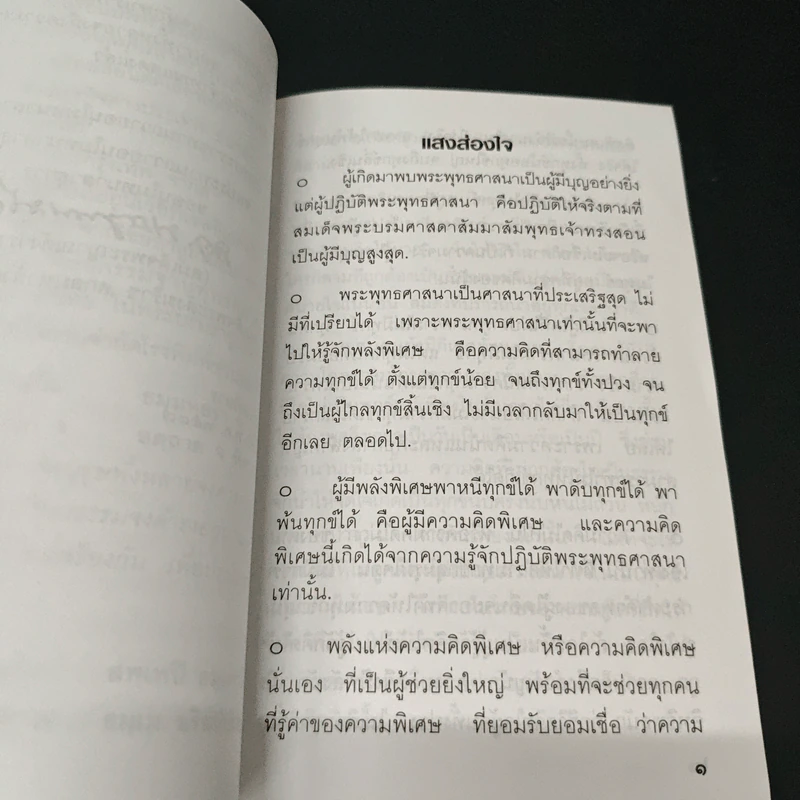 แสงส่องใจ
๐ ผู้เกิดมาพบพระพุทธศาสนาเป็นผู้มีบุญอย่างยิ่ง
แต่ผู้ปฏิบัติพระพุทธศาสนา คือปฏิบัติให้จริงตามที่
สมเด็จพระบรมศาสดาสัมมาสัมพุทธเจ้าทรงสอน
เป็นผู้มีบุญสูงสุด.
๐ พระพุทธศาสนาเป็นศาสนาที่ประเสริฐสุด ไม่
มีที่เปรียบได้ เพราะพระพุทธศาสนาเท่านั้นที่จะพา
ไปให้รู้จักพลังพิเศษ คือความคิดที่สามารถทำลาย
ความทุกข์ได้ ตั้งแต่ทุกข์น้อย จนถึงทุกข์ทั้งปวง จน
ถึงเป็นผู้ไกลทุกข์สิ้นเชิง ไม่มีเวลากลับมาให้เป็นทุกข์
อีกเลย ตลอดไป.
๐ ผู้มีพลังพิเศษพาหนีทุกข์ได้ พาดับทุกข์ได้ พา
พ้นทุกข์ได้ คือผู้มีความคิดพิเศษ และความคิด
พิเศษนี้เกิดได้จากความรู้จักปฏิบัติพระพุทธศาสนา
เท่านั้น.
๐ พลังแห่งความคิดพิเศษ หรือความคิดพิเศษ
นั่นเอง ที่เป็นผู้ช่วยยิ่งใหญ่ พร้อมที่จะช่วยทุกคน
ที่รู้ค่าของความพิเศษ ที่ยอมรับยอมเชื่อ ว่าความ
๑